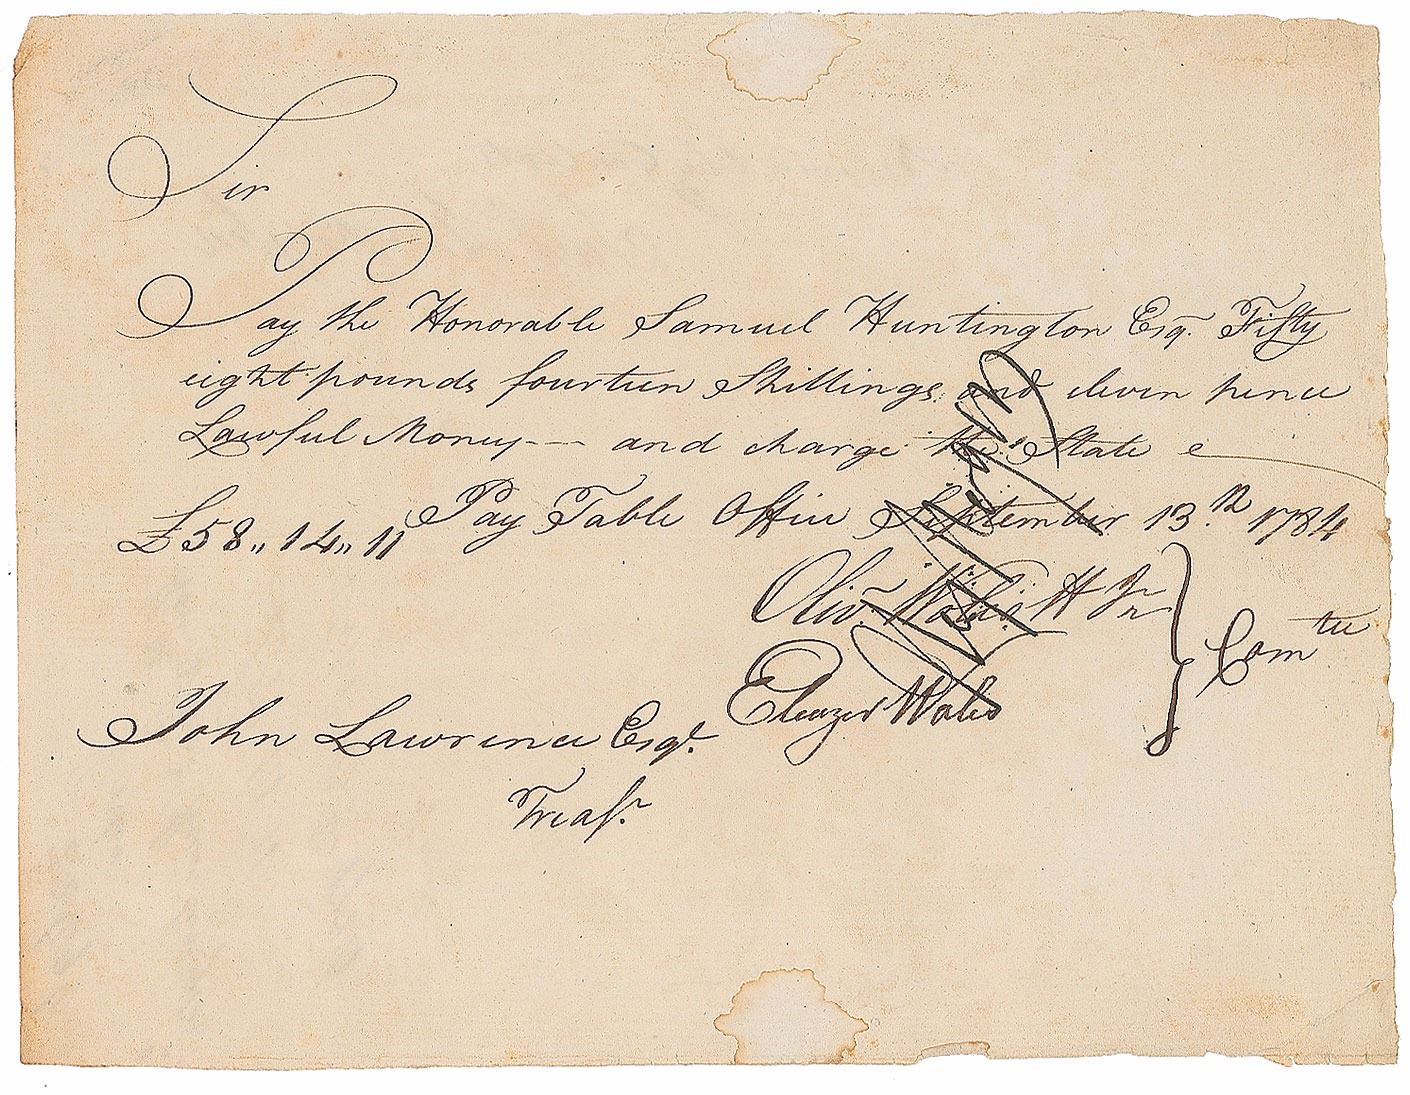 Sir
Pay the Honorable Samuel Huntington Esqr. Fifty
eight pounds fourteen Shillings and eleven pence
Lawful Money --- and charge the State
£58,, 14,, 11 Pay Table Office September 13th 1784
Olivr. Wolcott Jnr
Eleazer Wales
Comtee
John Lawrence Esqr.
Treasr.